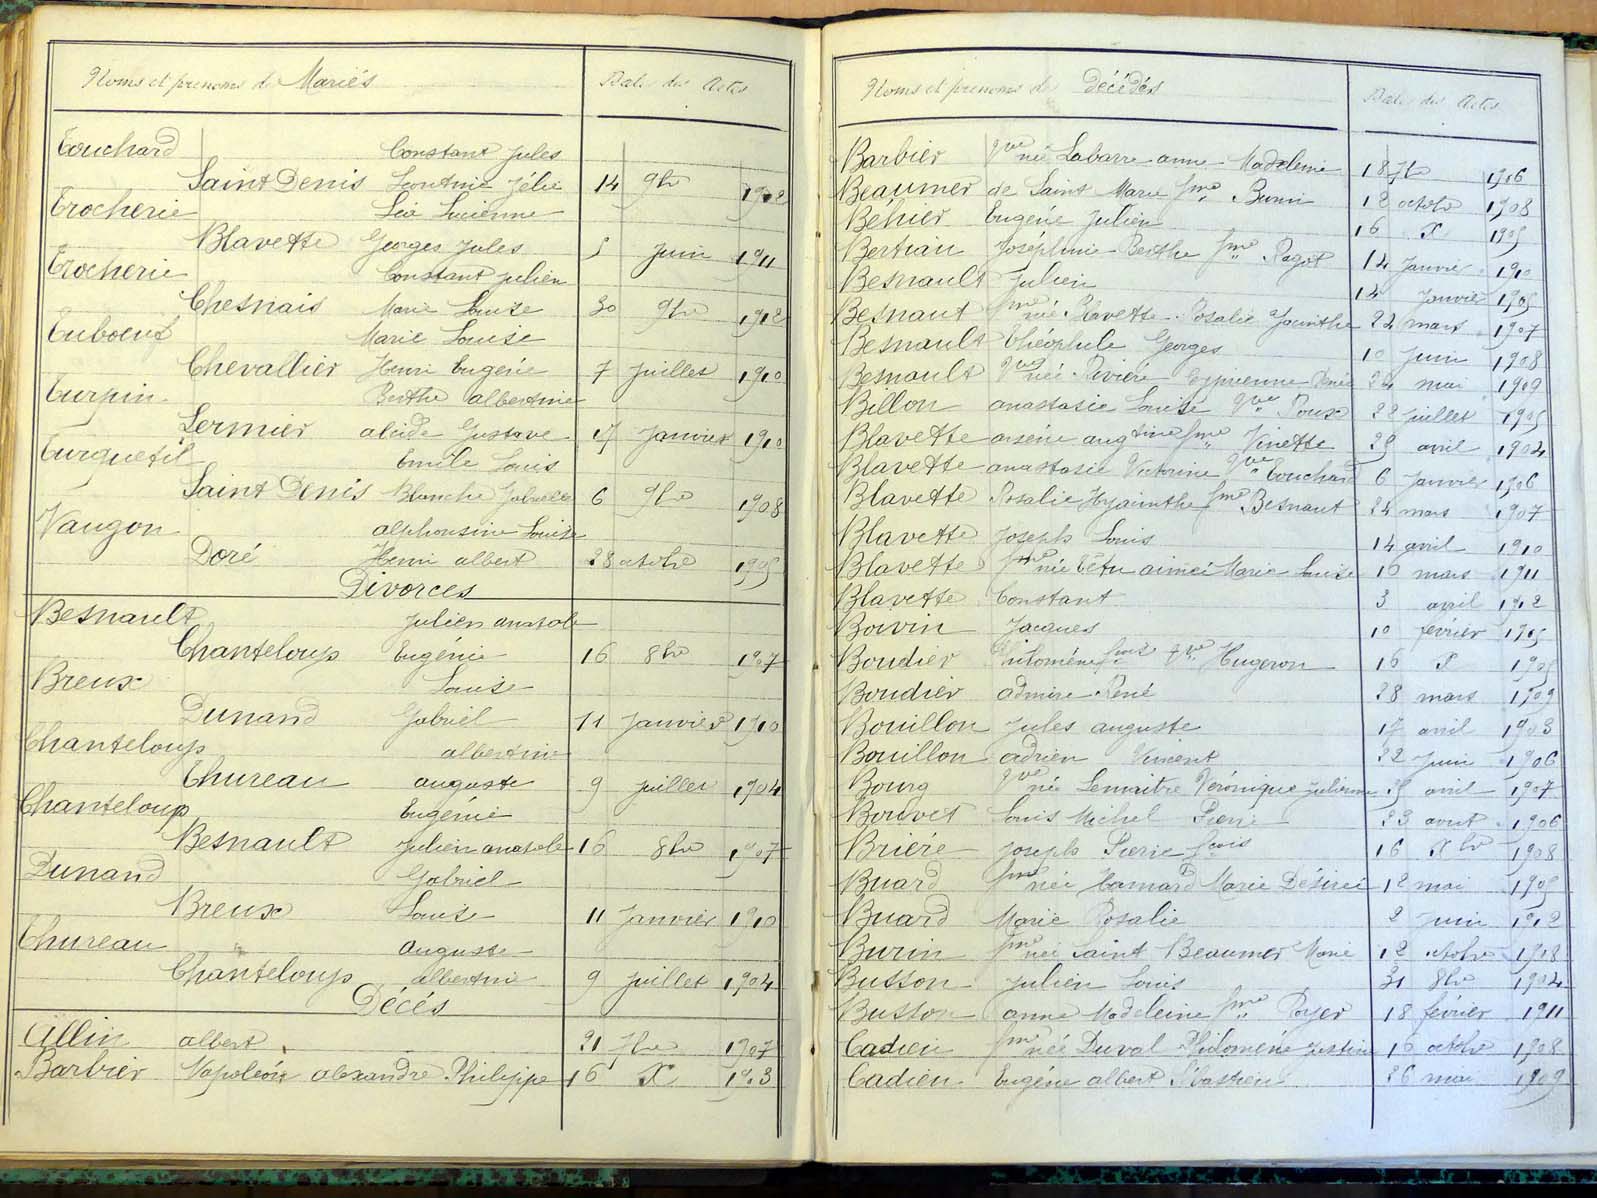 Noms et prénoms de Mariés Date des Actes
Touchard Constant Jules
Saint Denis Léontine Zélie 14 9bre 1902
Trocherie Léa Lucienne
Blavette Georges Jules 5 Juin 1911
Trocherie Constant Julien
Chesnais Marie Louise 30 9bre 1912
Tuboeuf Marie Louise
Chevallier Henri Eugène 7 Juillet 1910
Turpin Berthe albertine
Lermier alcide Gustave 17 Janvier 1910
Turquetil Emile Louis
Saint Denis Blanche Gabrielle 6 9bre 1908
Vaugon alphonsine Louise
Doré Henri albert 28 octobre 1905
Divorces
Besnault Julien anatole
Chanteloup Eugénie 16 8bre 1907
Breux Louise
Dunand Gabriel 11 Janvier 1910
Chanteloup albertine
Thureau auguste 9 juillet 1904
Chanteloup Eugénie
Besnault Julien anatole 16 8bre 1907
Dunand Gabriel
Breux Louise 11 Janvier 1910
Thureau Auguste
Chanteloup albertine 9 juillet 1904
Décès
Allin albert 21 7bre 1907
Barbier Napoléon alexandre Philippe 16 X 1903
Noms et prénoms de Décédés Date des Actes
Barbier Vve née Labarre anne Madeleine 18 7bre 1906
Beaumer de Saint Marie fme Burin 12 octobre 1908
Béhier Eugène Julien 16 X 1905
Bertrau Joséphine Berthe fme Pagot 14 Janvier 1910
Besnault Julien 14 Janvier 1905
Besnaut fme née Blavette Rosalie Hyacinthe 24 mars 1907
Besnault théophile Georges 10 Juin 1908
Besnault Vve née Rivière Renée 24 mai 1909
Billon anastasie Louise Vve Roux 22 juillet 1905
Blavette arsène augtine fme Vinette 25 avril 1904
Blavette anastasie Victorine Vve Touchard 6 Janvier 1906
Blavette Rosalie Hyacinthe fme Besnaut 24 mars 1907
Blavette Joseph Louis 14 avril 1910
Blavette fme née Têtu aimée Marie Louise 16 mars 1911
Blavette Constant 3 avril 1912
Boivin Jacques 10 février 1905
Boudier Philomène fme Vve Hugeron 16 X 1905
Boudier admire René 28 mars 1909
Bouillon Jules auguste 17 avril 1903
Bouillon adrien Vincent 22 Juin 1906
Bourg Vve née Lemaitre Véronique Julienne 25 avril 1907
Bouvet Louis Michel Pierre 23 aout 1906
Brière Joseph Pierre fçois 16 Xbre 1908
Buard fme née Hamard Marie Désirée 12 mai 1905
Buard Marie Rosalie 2 Juin 1912
Burin fme née Saint Beaumer Marie 12 octobre 1908
Busson Julien Louis 31 8bre 1904
Busson anne Madeleine fme Poyer 18 février 1911
Cadieu fme née Duval Philomène Justine 16 octobre 1908
Cadieu Eugène albert Sébastien 26 mai 1909